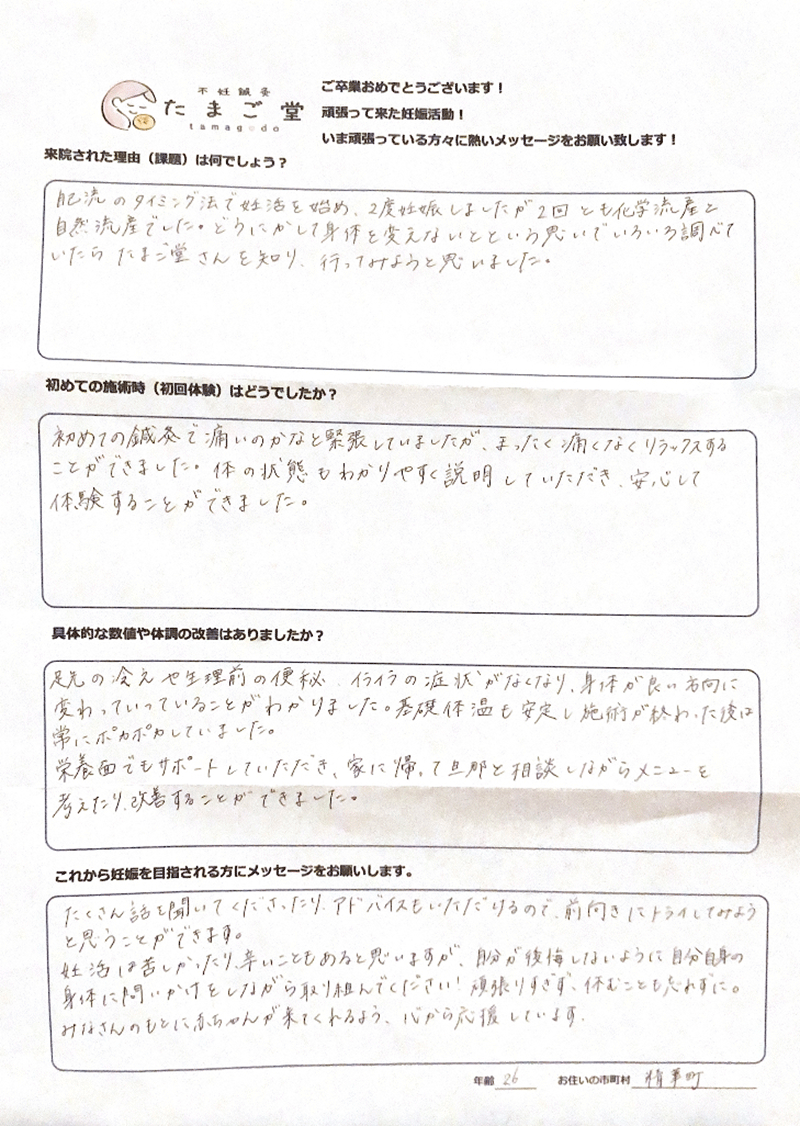 不妊鍼灸
たまご堂
tamagodo
ご卒業おめでとうございます！
頑張って来た妊娠活動！
いま頑張っている方々に熱いメッセージをお願い致します！
来院された理由（課題）は何でしょう？
自己流のタイミング法で妊活を始め、2度妊娠しましたが2回とも化学流産と
自然流産でした。どうにかして身体を変えないとという思いでいろいろ調べて
いたら たまご堂さんを知り、行ってみようと思いました。
初めての施術時（初回体験）はどうでしたか？
初めての鍼灸で痛いのかなと緊張していましたが、まったく痛くなくリラックスする
ことができました。体の状態もわかりやすく説明していただき、安心して
体験することができました。
具体的な数値や体調の改善はありましたか？
足先の冷えや生理前の便秘、イライラの症状がなくなり、身体が良い方向に
変わっていっていることがわかりました。基礎体温も安定し施術が終わった後は
常にポカポカしていました。
栄養面でもサポートしていただき、家に帰って旦那と相談しながらメニューを
考えたり、改善することができました。
これから妊娠を目指される方にメッセージをお願いします。
たくさん話を聞いてくださったり、アドバイスもいただけるので、前向きにトライしてみよう
と思うことができます。
妊活は苦しかったり、辛いこともあると思いますが、自分が後悔しないように自分自身の
身体に問いかけをしながら取り組んでください！頑張りすぎず、休むことも忘れずに。
みなさんのもとに赤ちゃんが来てくれるよう、心から応援しています.
年齢 26 お住いの市町村 精華町